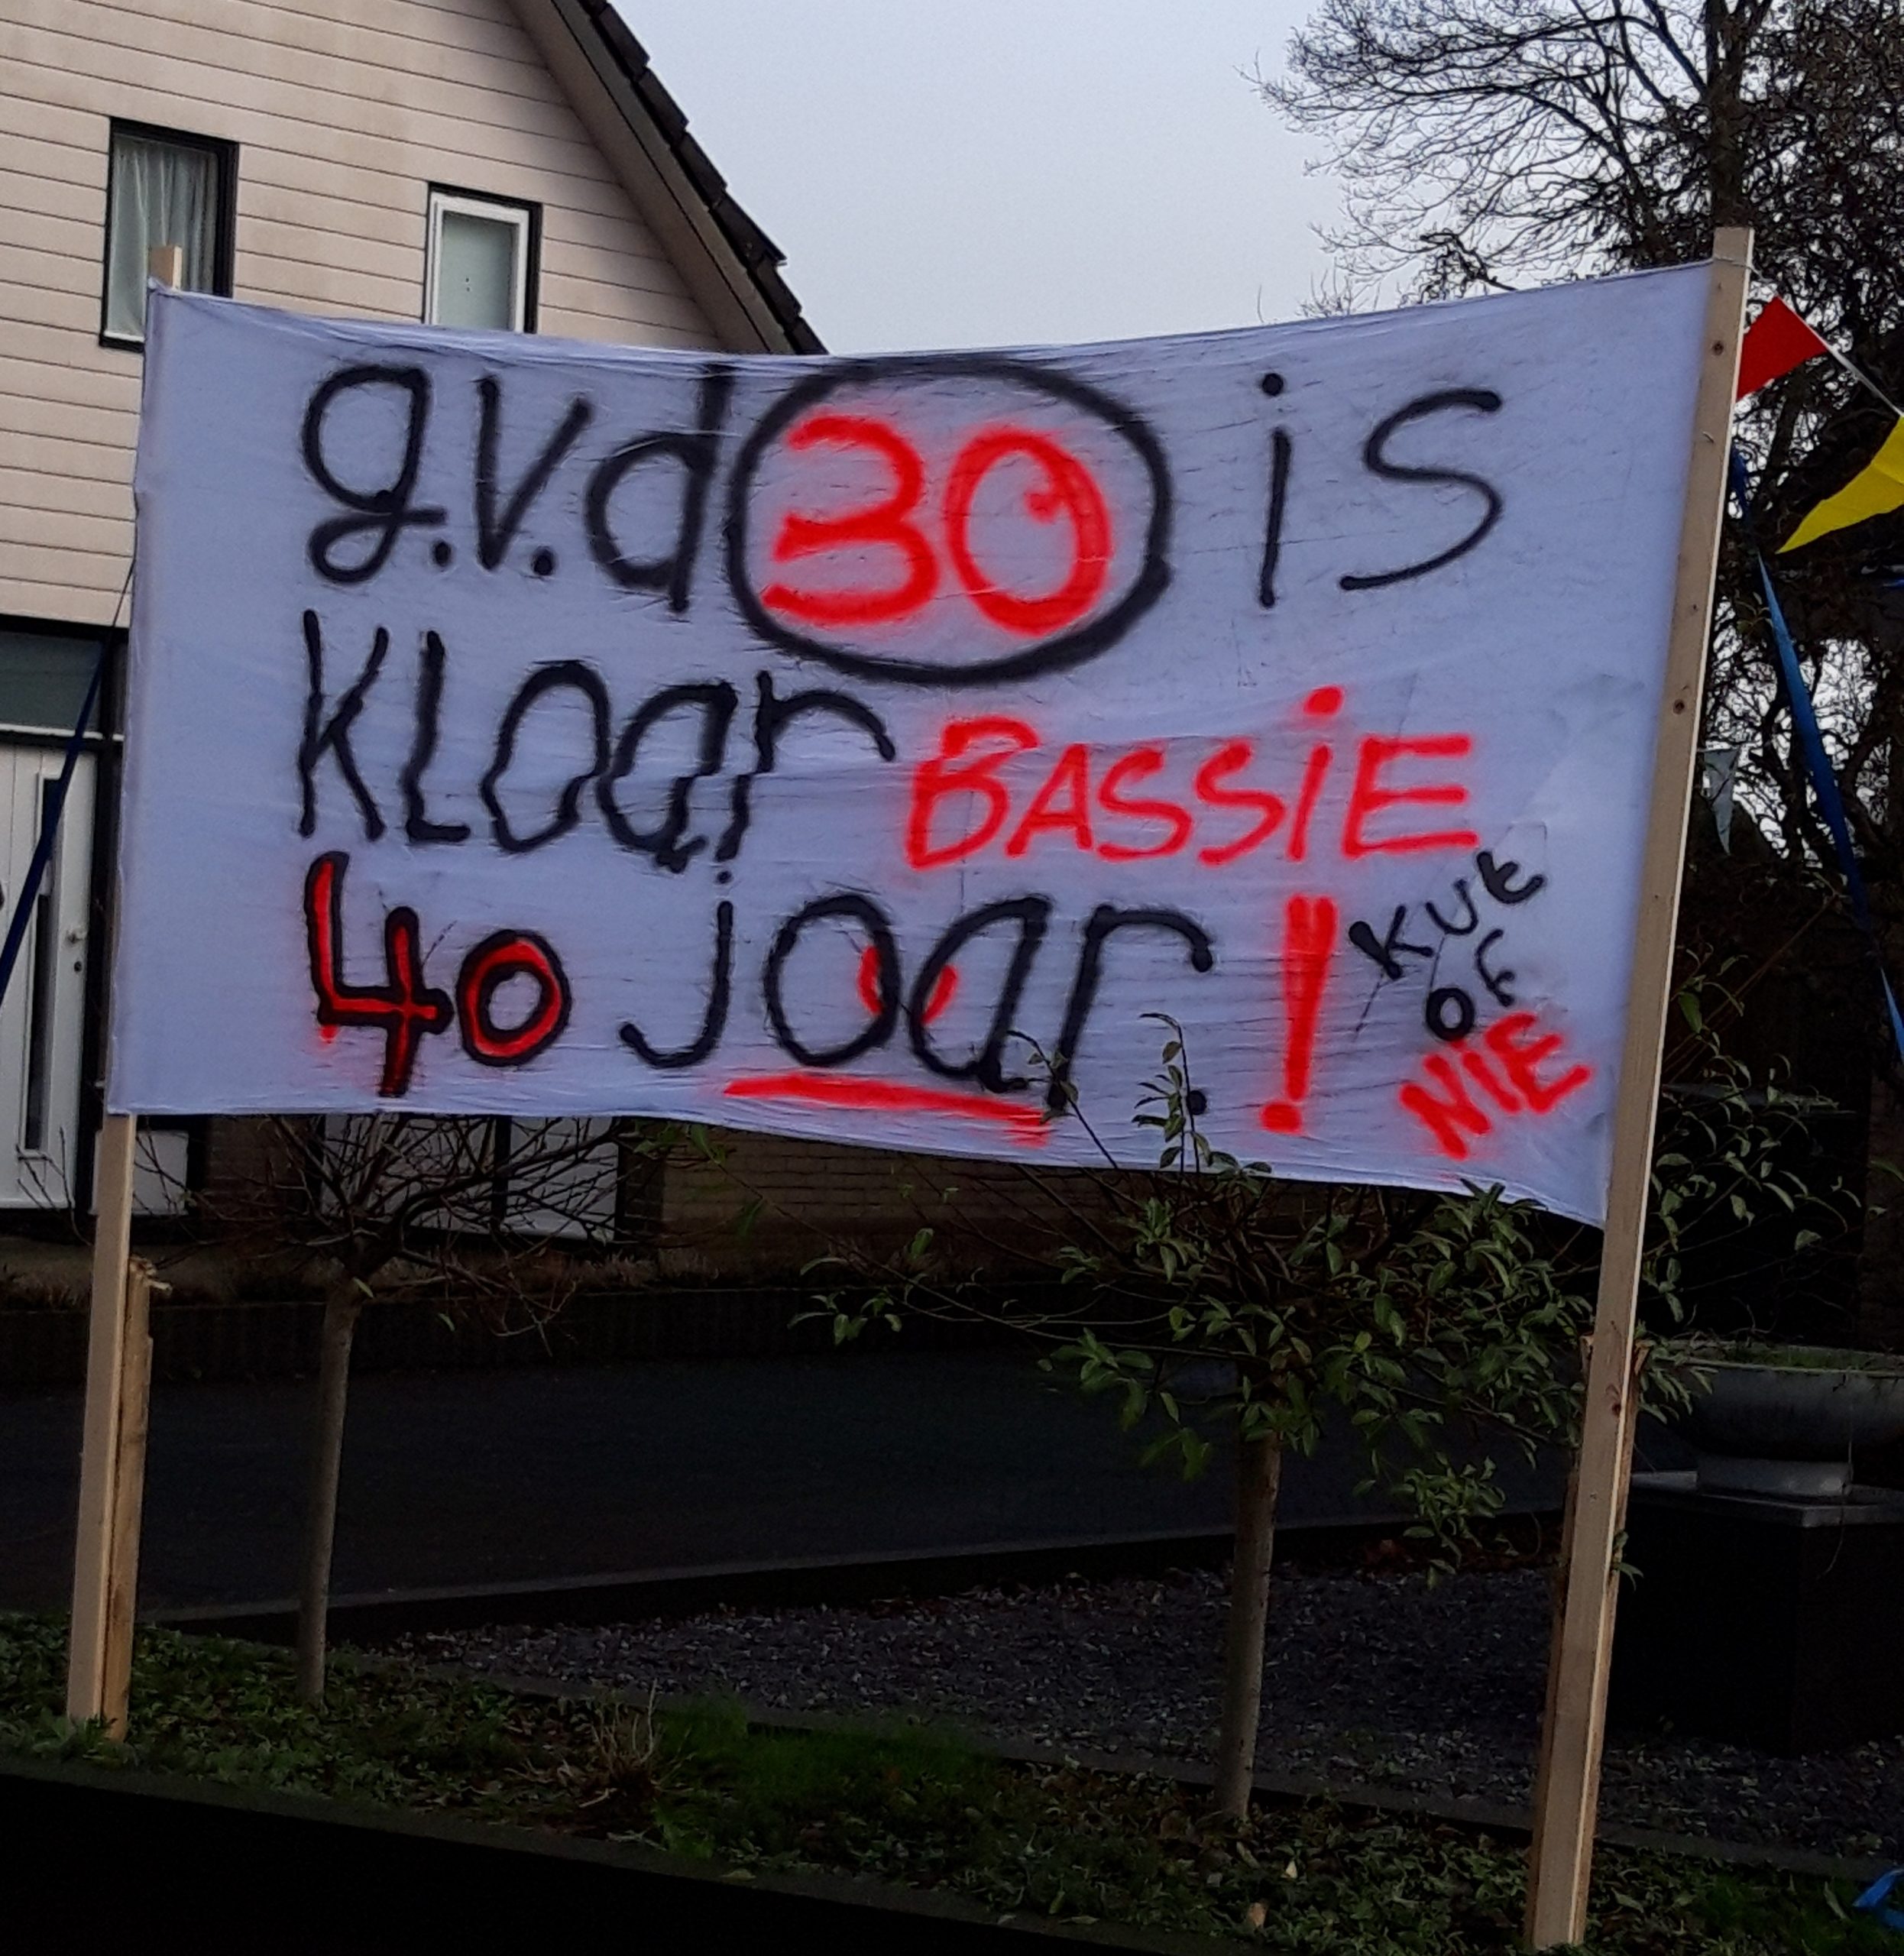 g.v.d 30 is
KLoar BASSiE
40 joar. !
KUt
of
NiE